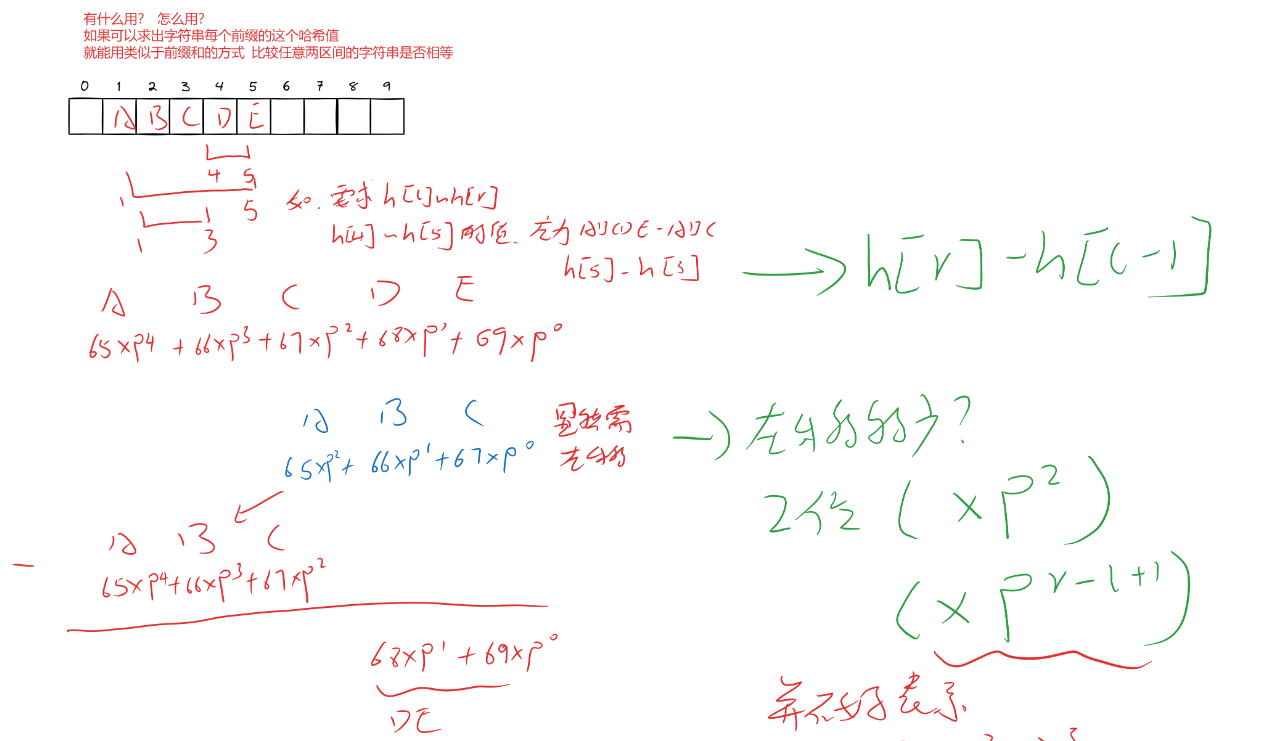 有什么用？ 怎么用？
如果可以求出字符串每个前缀的这个哈希值
就能用类似于前缀和的方式 比较任意两区间的字符串是否相等
0 1 2 3 4 5 6 7 8 9
A B C D E
4 5
1 5
1 3
如. 要求 h[l]~h[r]
h[4]~h[5]的值. 应为 ABCDE-ABC
h[5]-h[3]
h[r]-h[l-1]
A B C D E
65×p4 + 66×p3 + 67×p2 + 68×p1 + 69×p0
A B C
65×p2 + 66×p1 + 67×p0
显然需
左移
左移多少?
2位 (×p2)
(×p r-l+1)
A B C
- 65×p4+66×p3+67×p2
68×p1 + 69×p0
DE
并不好表示